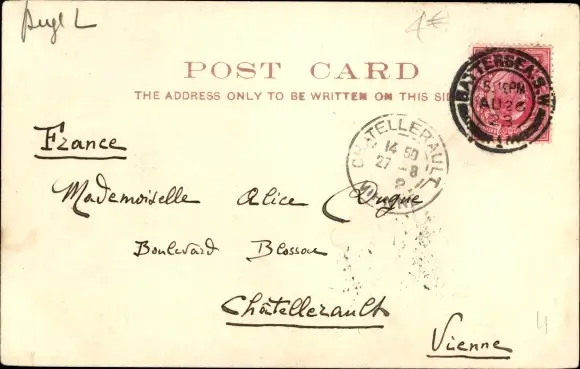 Angl L
4€
POST CARD
THE ADDRESS ONLY TO BE WRITTEN ON THIS SIDE
BATTERSEA.S.W
5.15PM
AU 26
CHATELLERAULT
14 50
27 -8
VIENNE
France
Mademoiselle Alice Dugue
Boulevard Blossac
Châtellerault
Vienne
4